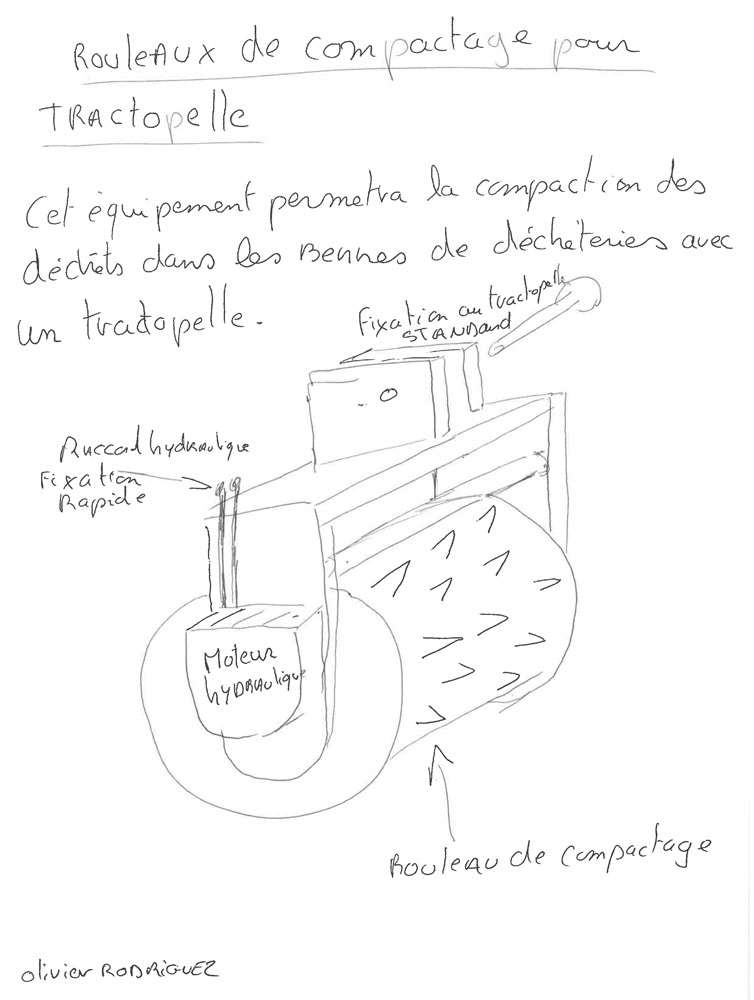 Rouleaux de compactage pour
Tractopelle
Cet équipement permetra la compaction des
déchêts dans les Bennes de déchèteries avec
un tractopelle.
Fixation au tractopelle
STANDard
Raccad hydraulique
Fixation
Rapide
Moteur
hydraulique
Rouleau de compactage
olivier RODRIGUEZ